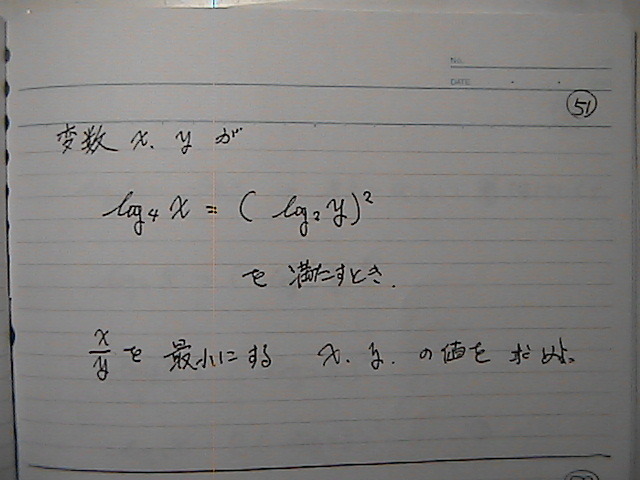 No.
DATE
51
変数 x, y が
log₄ x = ( log₂ y)²
を 満たすとき.
x/y を 最小にする x. y. の値を 求めよ。